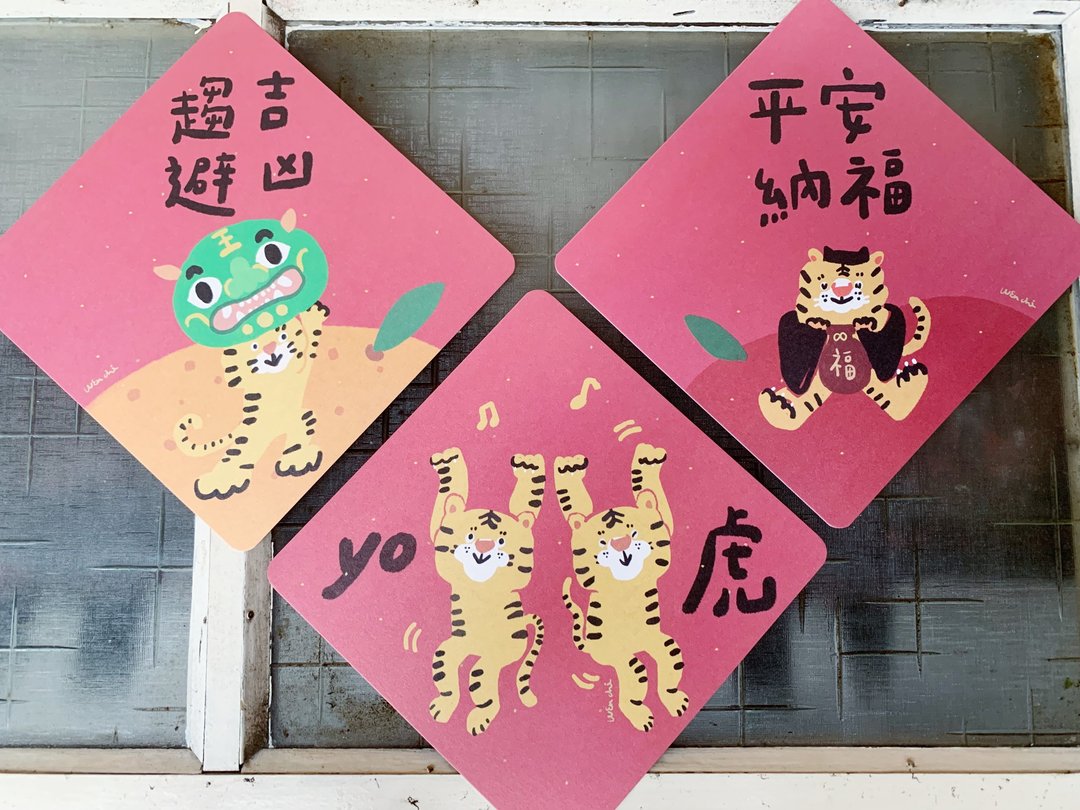 趨吉
避凶
王
wen chi
平安
納福
福
wen chi
yo 虎
wen chi